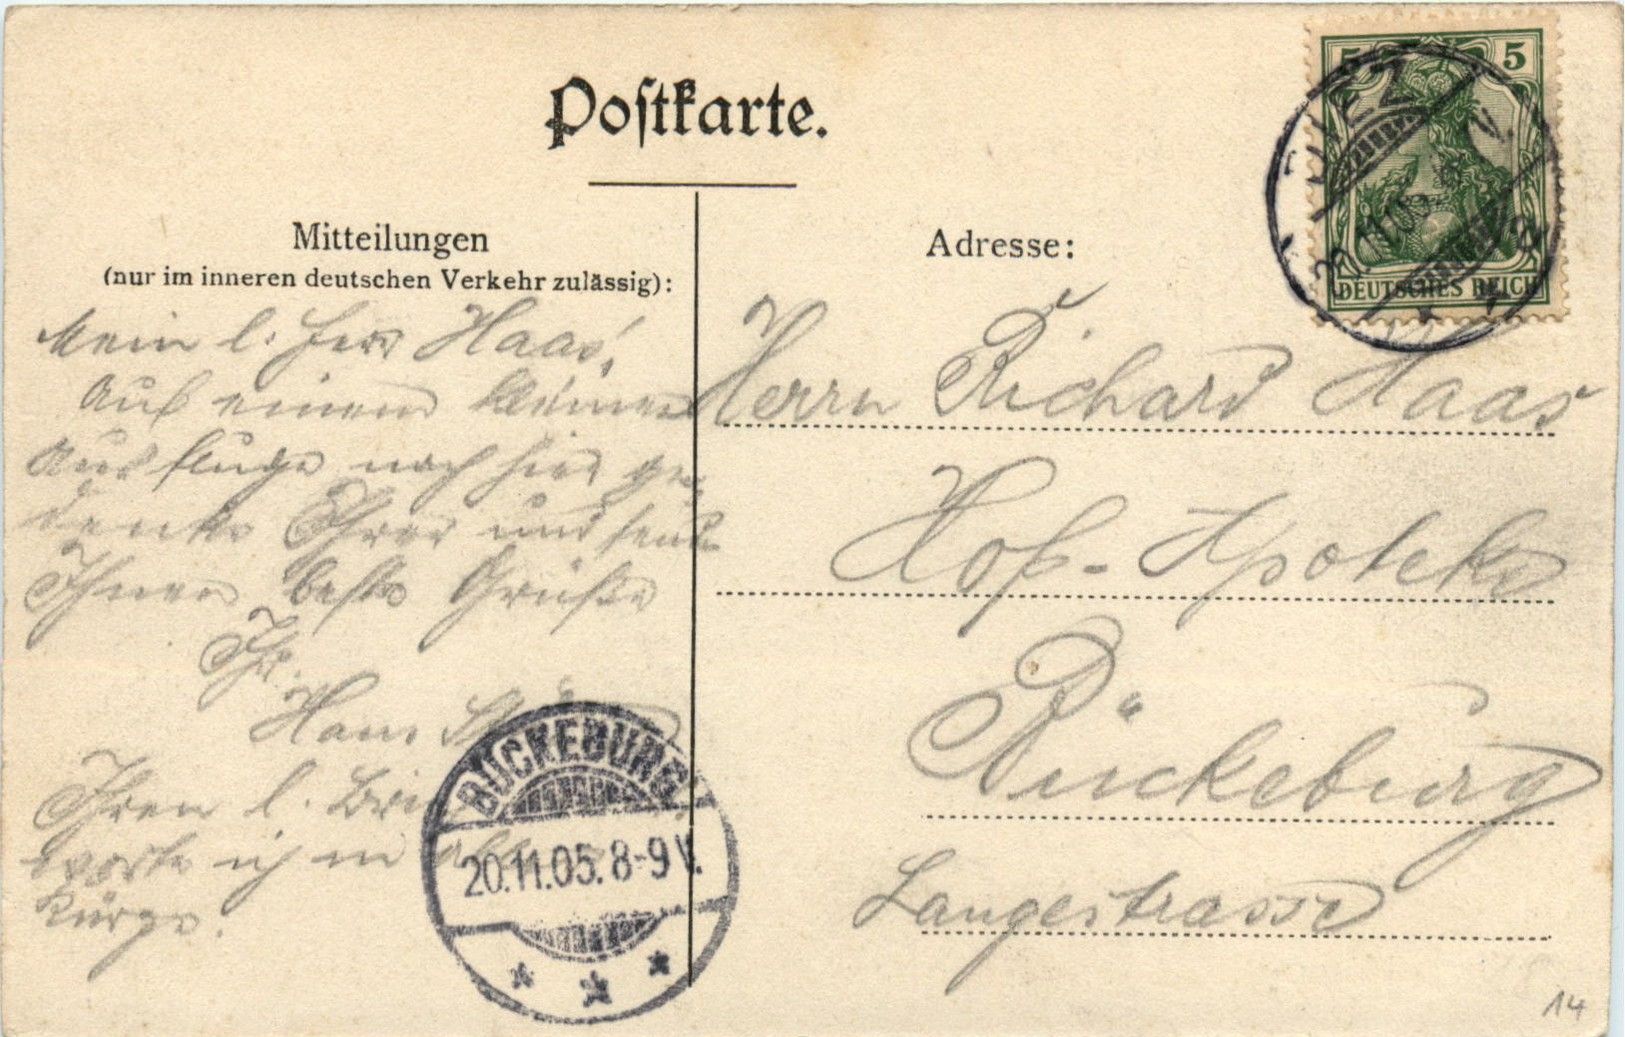 Postkarte.
Mitteilungen
(nur im inneren deutschen Verkehr zulässig):
Mein l. Herr Haas!
Auf einem kleinen
Ausfluge nach hier ge-
denke Ihrer und sende
Ihnen beste Grüße
Ihr
Hans
Ihren l. Brief
ich in
Kürze.
Adresse:
Herrn Richard Haas
Hof-Apoteke
Bückeburg
Langestrasse
5 5
DEUTSCHES REICH
BÜCKEBURG
20.11.05. 8-9 V.
14